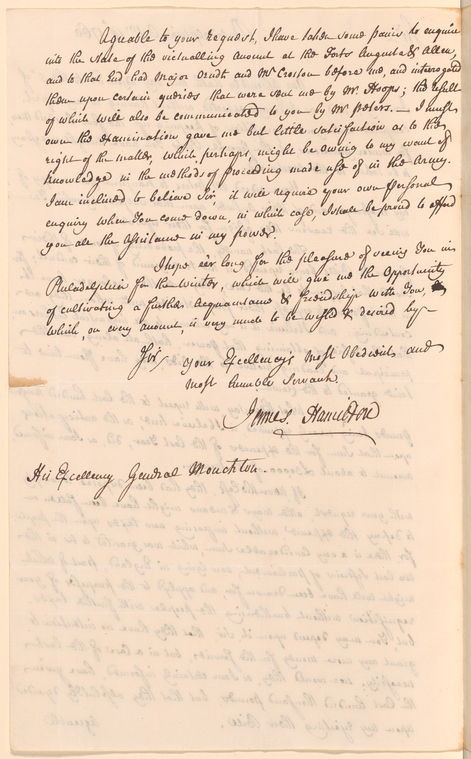 Agreable to your request, I have taken some pains to enquire
into the State of the victualling Account at the Forts Augusta & Allen,
and to that End had Major Orndt and Mr. Croston before me, and interrogated
them upon certain queries that were sent me by Mr. Hoops; the result
of which will also be communicated to you by Mr. Peters. — I must
own the examination gave me but little satisfaction as to the
right of the matter, which perhaps, might be owing to my want of
knowledge in the methods of proceeding made use of in the Army.
I am inclined to believe Sir, it will require your own Personal
enquiry when You come down, in which case, I shall be proud to afford
you all the Assistance in my power.
I hope e'er long for the pleasure of seeing You in
Philadelphia for the Winter, which will give me the Opportunity
of cultivating a further Acquaintance & friendship with You,
which, on every account is very much to be wish'd & desired by —
Sir/ Your Excellency's Most Obedient and
most humble Servant.
James Hamilton
His Excellency General Monckton.